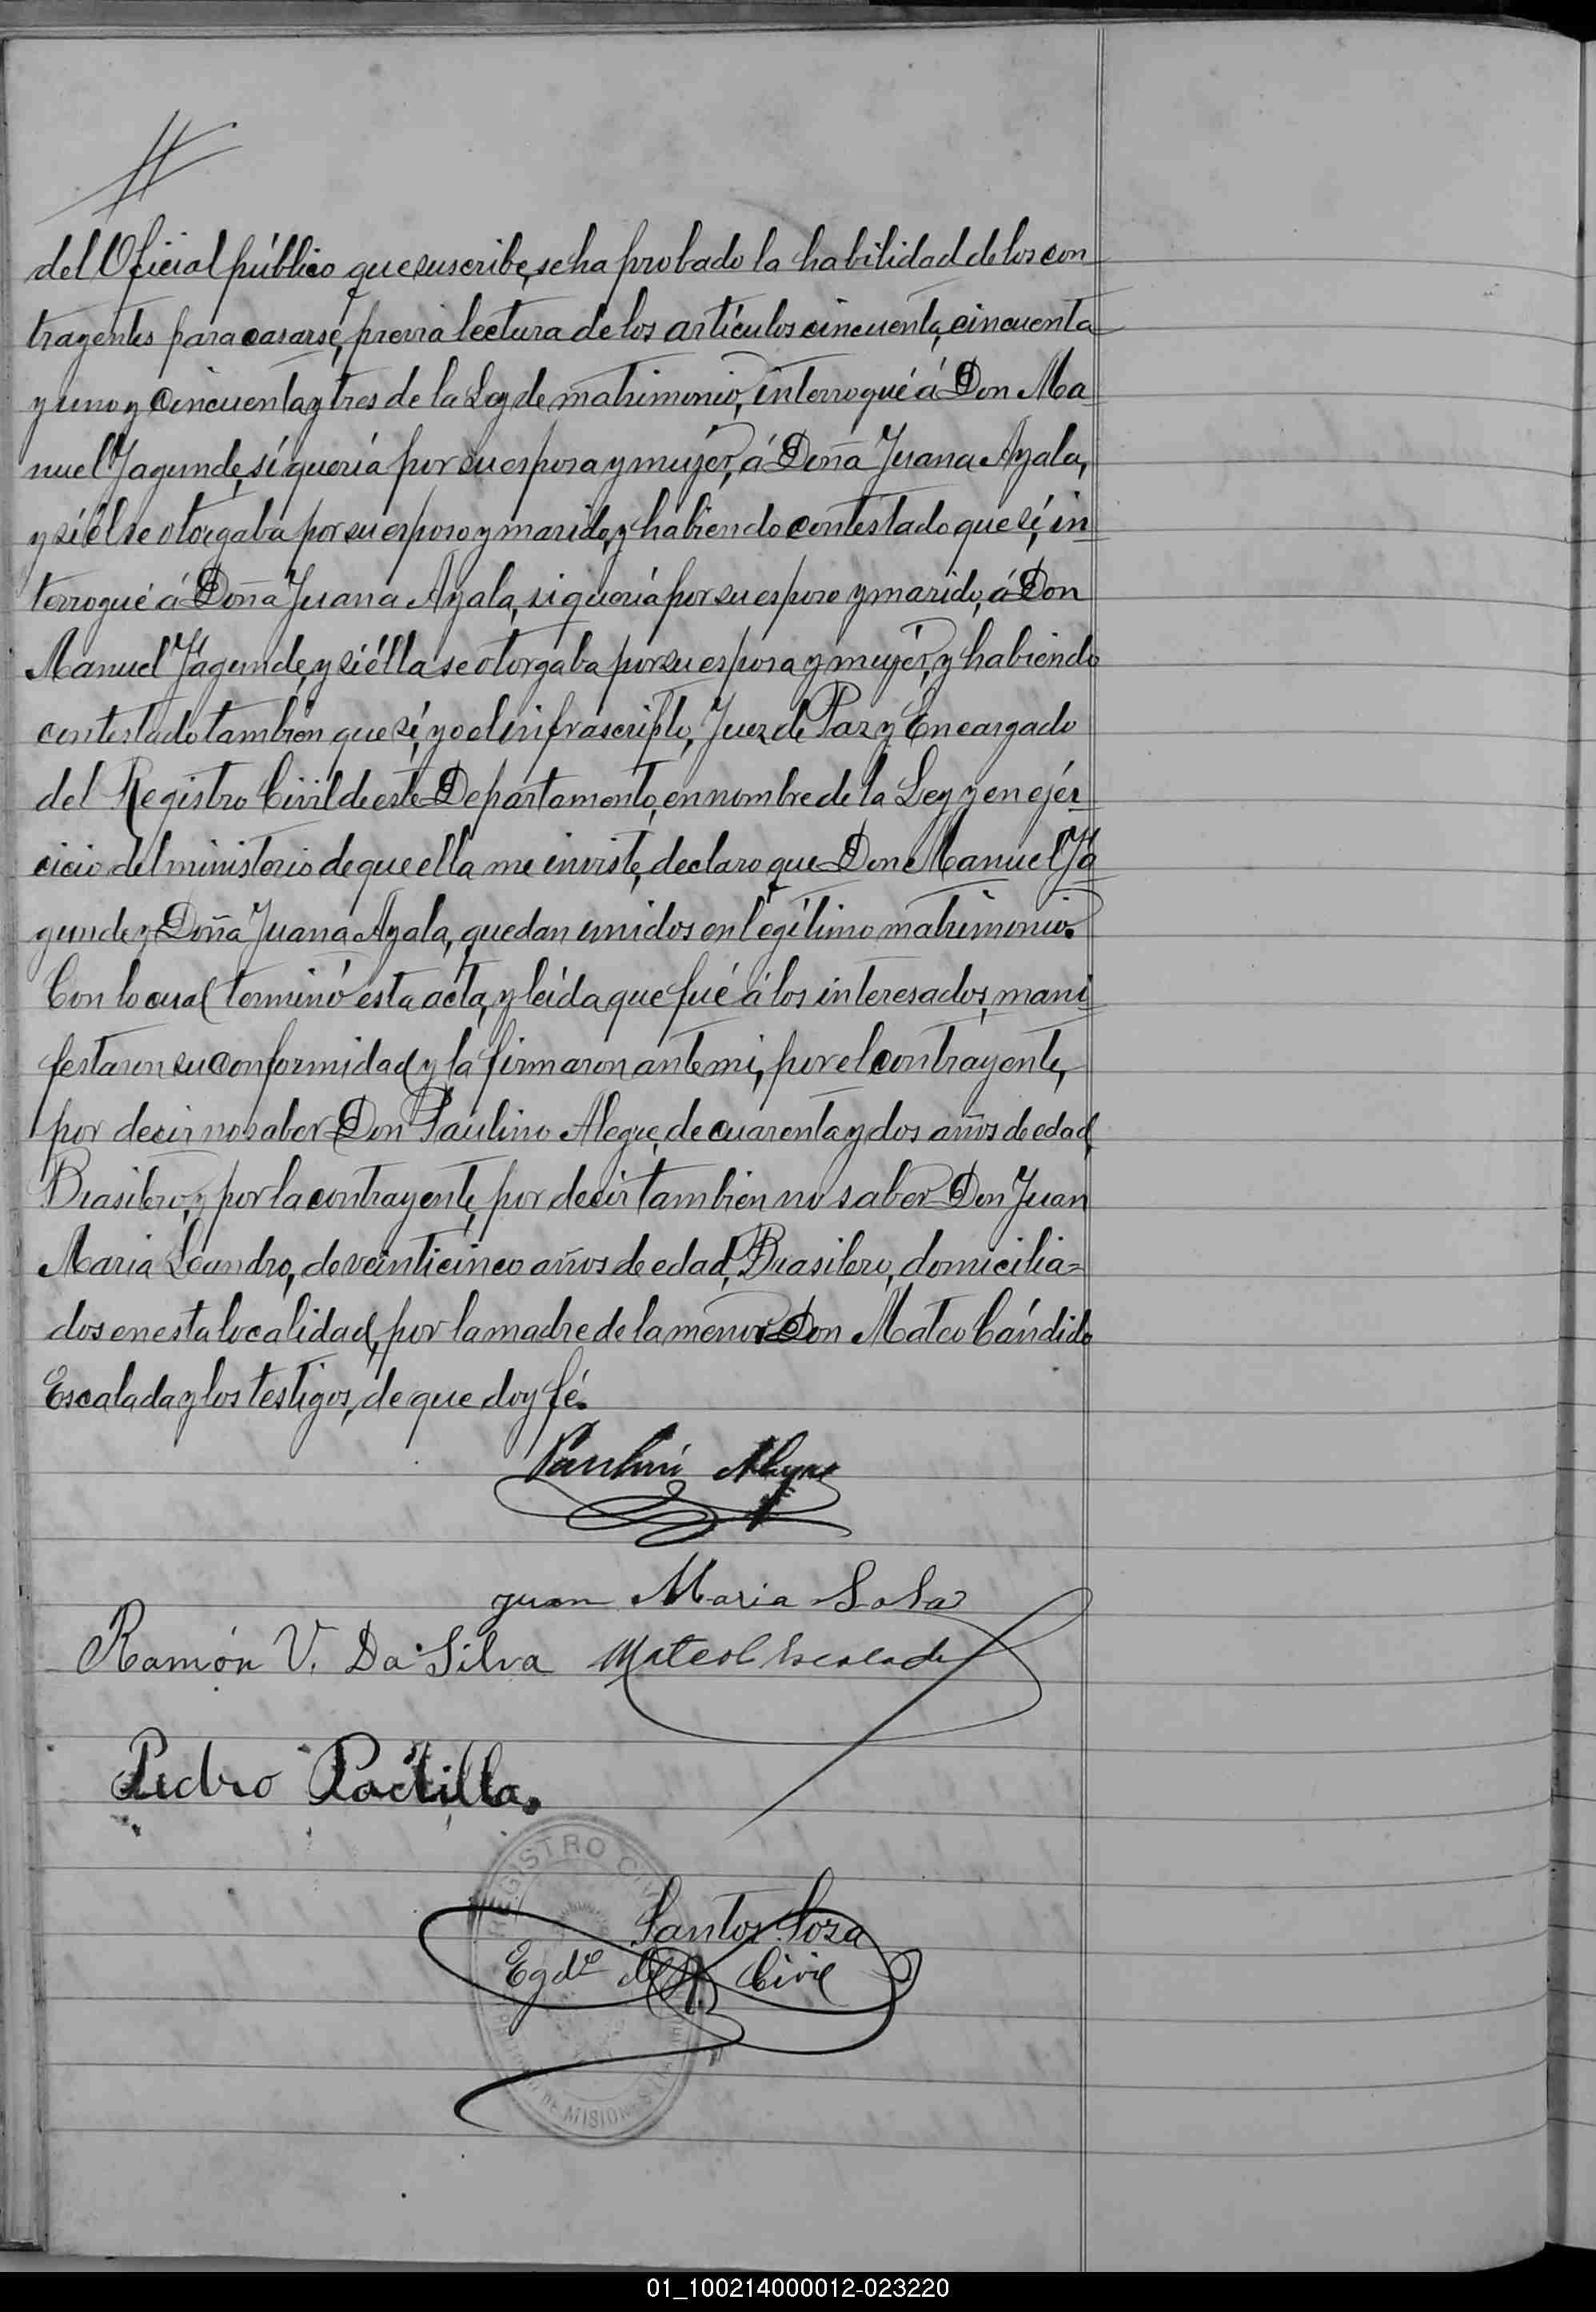 del Oficial público que suscribe, se ha probado la habilidad de los con
trayentes para casarse, previa lectura de los artículos cincuenta, cincuenta
y uno y cincuenta y tres de la Ley de matrimonio, interrogué á Don Ma
nuel Yagunde, sí quería por su esposa y mujer, á Doña Juana Ayala,
y sí él se otorgaba por su esposo y marido, y habiendo contestado que sí, in
terrogué á Doña Juana Ayala, si quería por su esposo y marido, á Don
Manuel Yagunde, y si élla se otorgaba por su esposa y mujer, y habiendo
contestado tambien que sí, yo el infrascripto, Juez de Paz y Encargado
del Registro Civil de este Departamento, en nombre de la Ley y en ejér
cicio del ministerio de que ella me inviste, declaro que Don Manuel Ya
gunde y Doña Juana Ayala, quedan unidos en legítimo matrimonio.
Con lo cual terminó esta acta, y leída que fué á los interesados, mani
festaron su conformidad y la firmaron ante mi, por el contrayente,
por decir no saber Don Paulino Alegre, de cuarenta y dos años de edad,
Brasilero, y por la contrayente, por decir tambien no saber Don Juan
Maria Leandro, de veinticinco años de edad, Brasilero, domicilia=
dos en esta localidad, por la madre de la menor Don Mateo Cándido
Escalada y los testigos, de que doy fé.
Paulino Alegre
Juan Maria
Ramón V. Da Silva Mateo C Escalada
Pedro Padilla.
REGISTRO CIVIL
Santos Sosa
Egdo del R. Civil
DE MISIONES
01_100214000012-023220